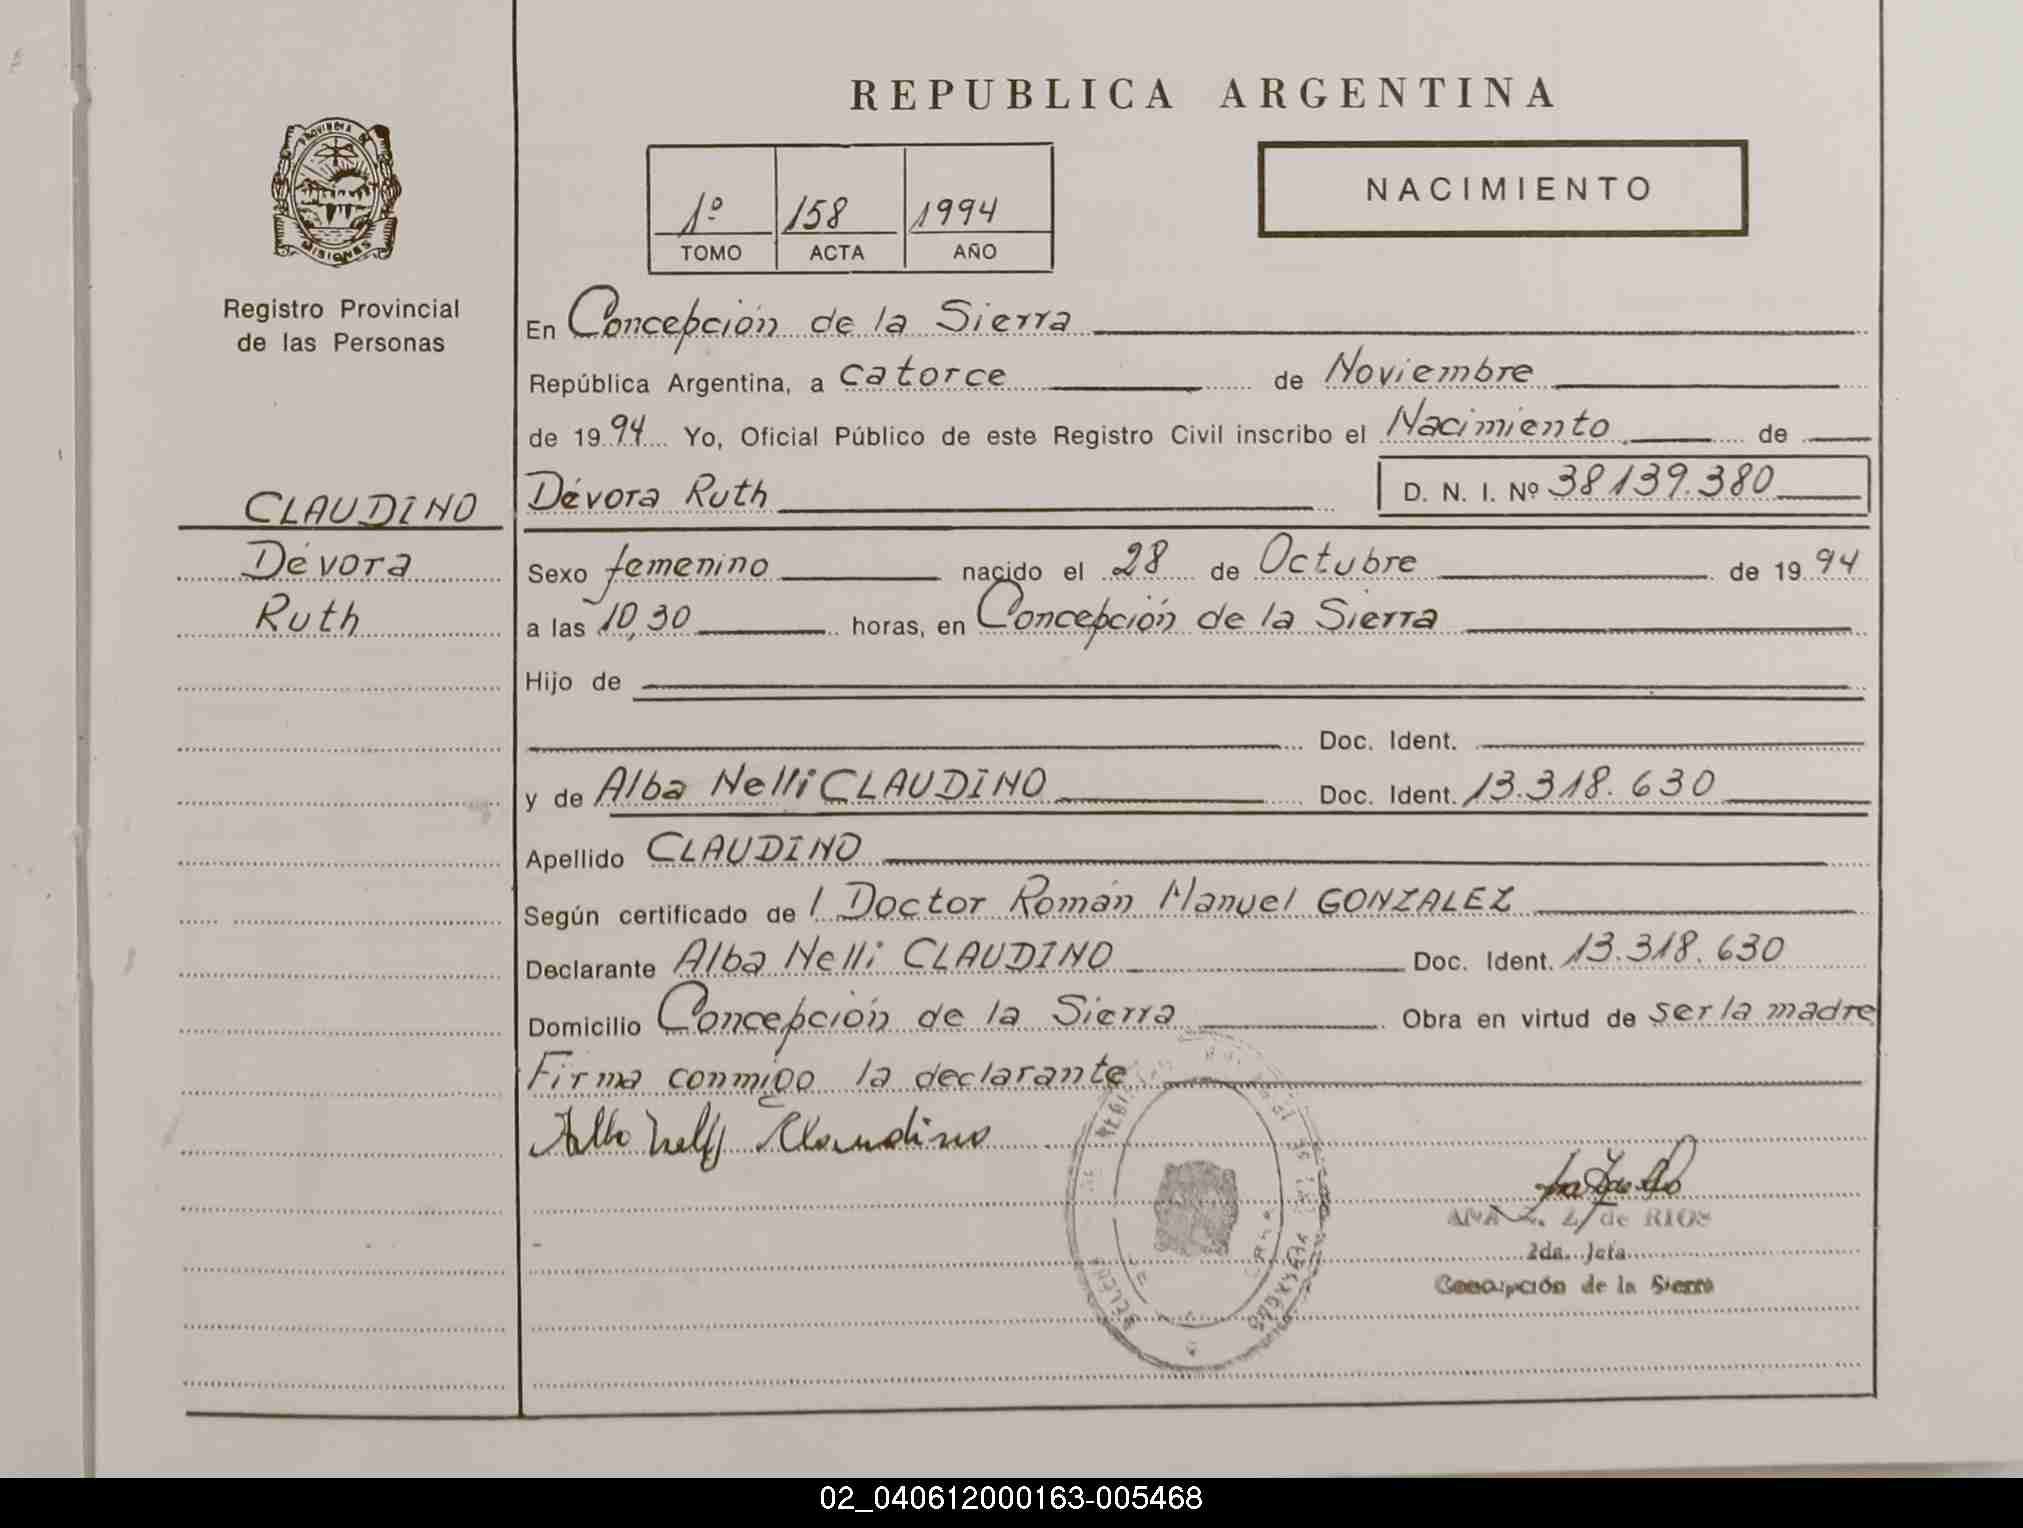 REPUBLICA ARGENTINA
PROVINCIA DE
MISIONES
Registro Provincial
de las Personas
1º 158 1994
TOMO ACTA AÑO
NACIMIENTO
En Concepción de la Sierra
República Argentina, a catorce de Noviembre
de 1994 Yo, Oficial Público de este Registro Civil inscribo el Nacimiento de
CLAUDINO
Dévora
Ruth
Dévora Ruth D. N. I. Nº 38139.380
Sexo femenino nacido el 28 de Octubre de 1994
a las 10,30 horas, en Concepción de la Sierra
Hijo de
Doc. Ident.
y de Alba Nelli CLAUDINO Doc. Ident. 13.318.630
Apellido CLAUDINO
Según certificado del Doctor Román Manuel GONZALEZ
Declarante Alba Nelli CLAUDINO Doc. Ident. 13.318.630
Domicilio Concepción de la Sierra Obra en virtud de ser la madre
Firma conmigo la declarante
Alba Nelly Claudino
de RIOS
2da. Jefa
Concepción de la Sierra
02_040612000163-005468